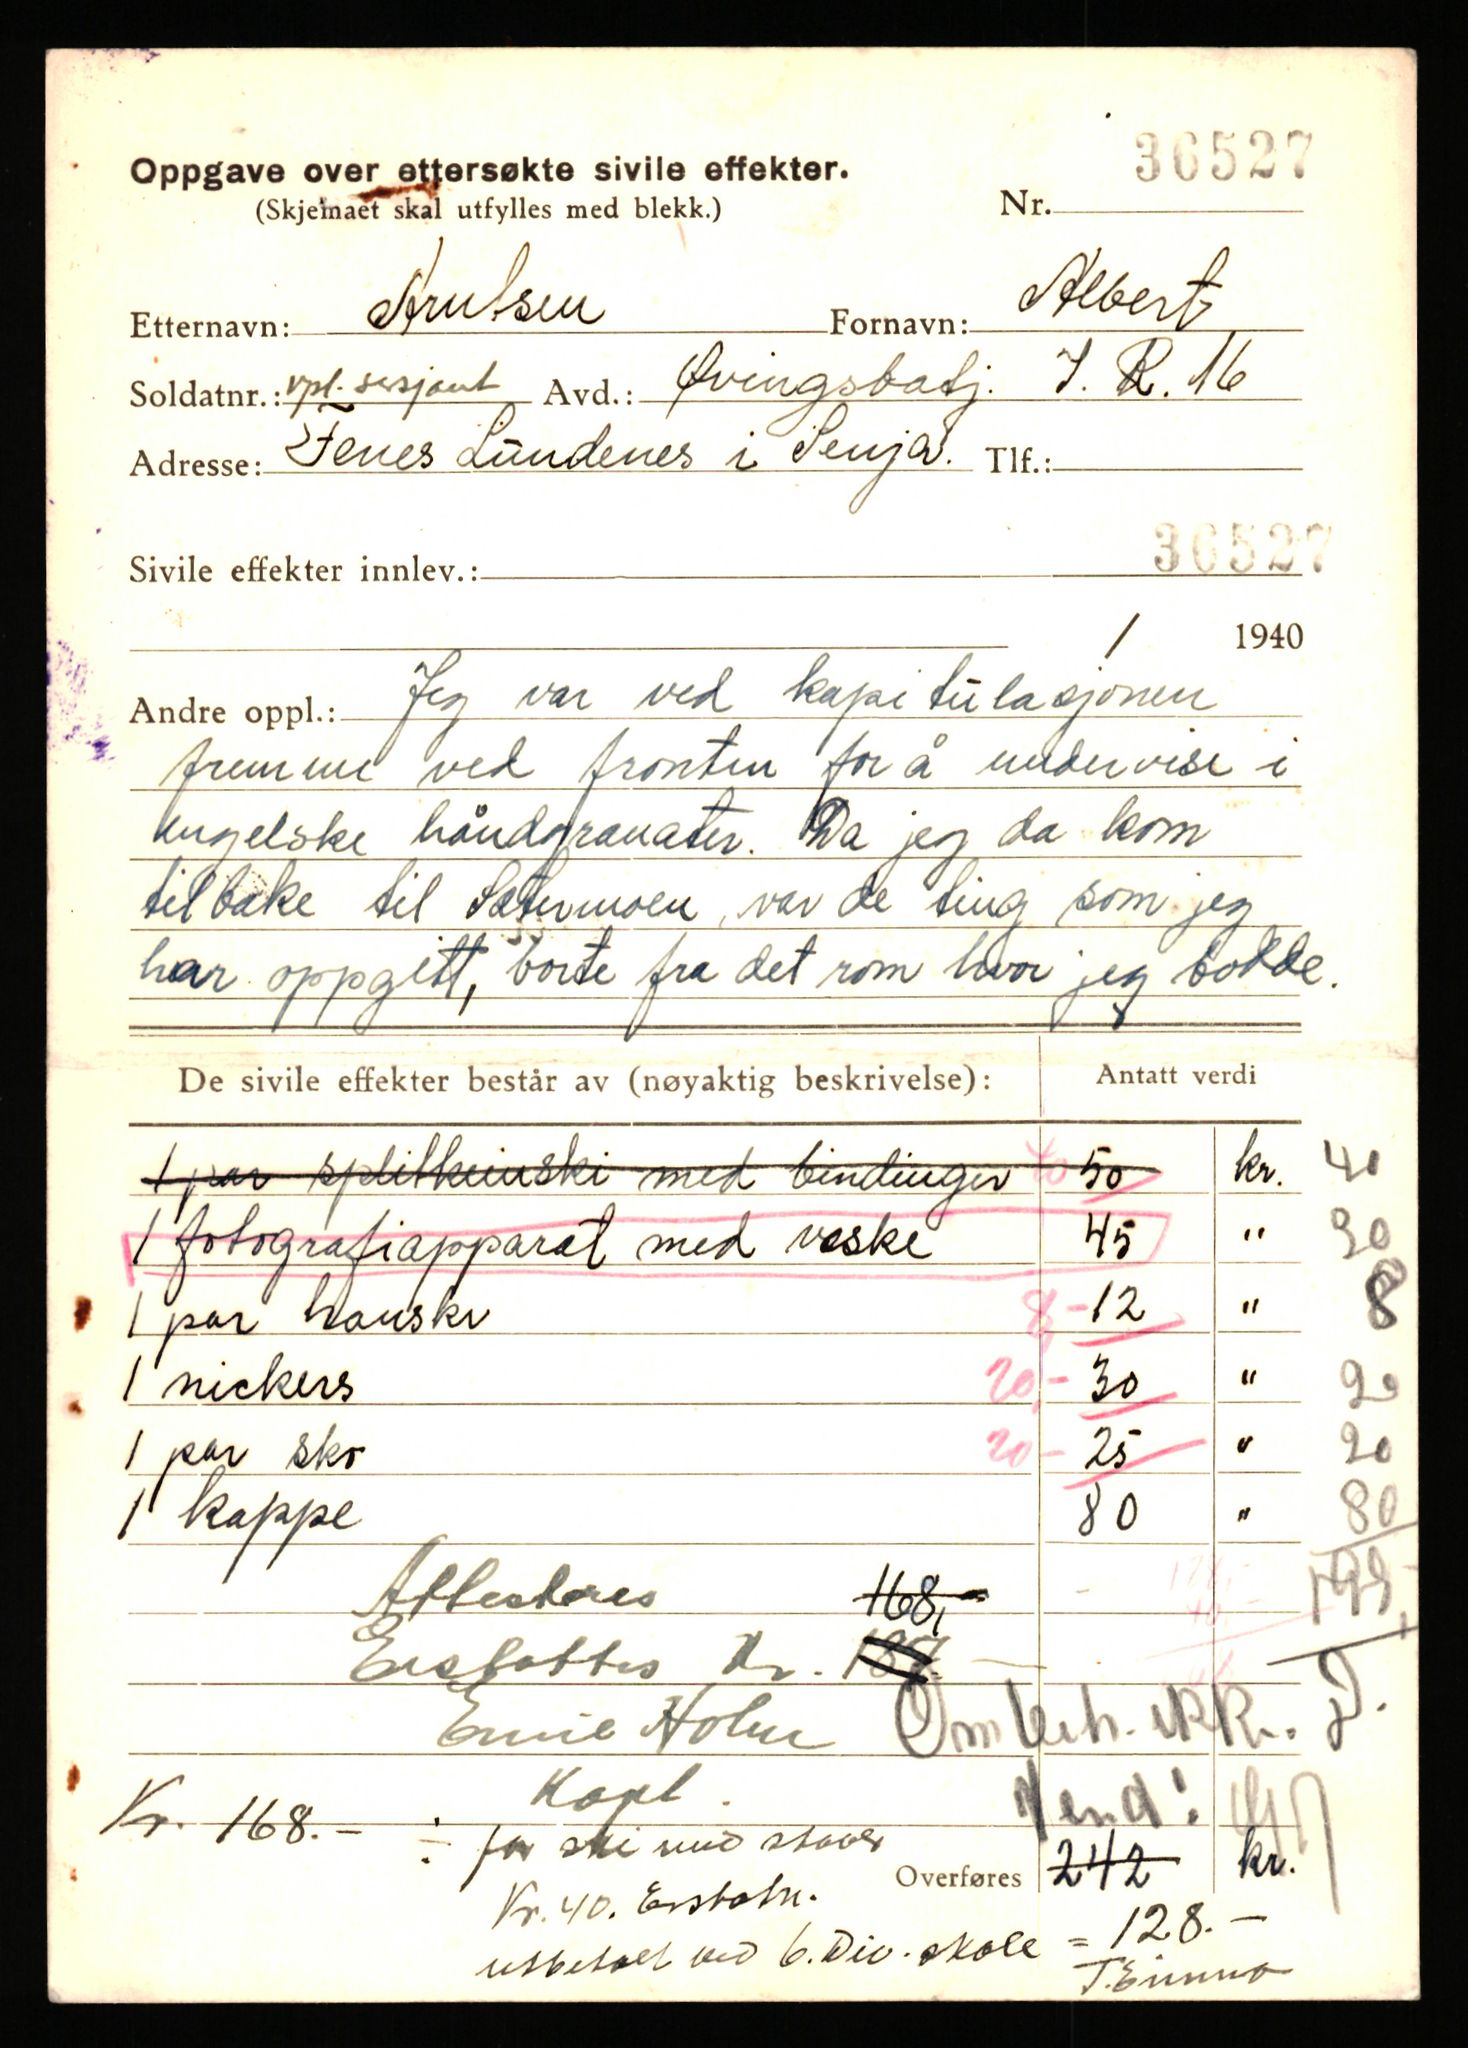 36527
Oppgave over ettersøkte sivile effekter.
(Skjemaet skal utfylles med blekk.)
Nr.
Etternavn: Arntsen Fornavn: Albert
Soldatnr.: vpl. sersjant Avd.: Øvingsbatj. I. R. 16
Adresse: Fenes Lundenes i Senja. Tlf.:
Sivile effekter innlev.: 36527
/ 1940
Andre oppl.: Jeg var ved kapitulasjonen
fremme ved fronten for å undervise i
engelske håndgranater. Da jeg da kom
tilbake til Setermoen, var de ting som jeg
har oppgitt, borte fra det rom hvor jeg bodde.
De sivile effekter består av (nøyaktig beskrivelse): Antatt verdi
1 par splitkeinski med bindinger 40 50 kr. 40
1 fotografiapparat med veske 45 " 30
1 par hansker 8,- 12 " 8
1 nickers 20,- 30 " 20
1 par sko 20- 25 " 20
1 kappe 80 " 80
Attesteres 168,-
Erstattes kr. 187
Emil Holm
Kapt.
Ombeh. ukk.
Vend!
Kr. 168.- ÷ for ski med staver
Overføres 242 kr.
Kr. 40. Erstatn.
utbetalt ved 6. Div. skole = 128.-